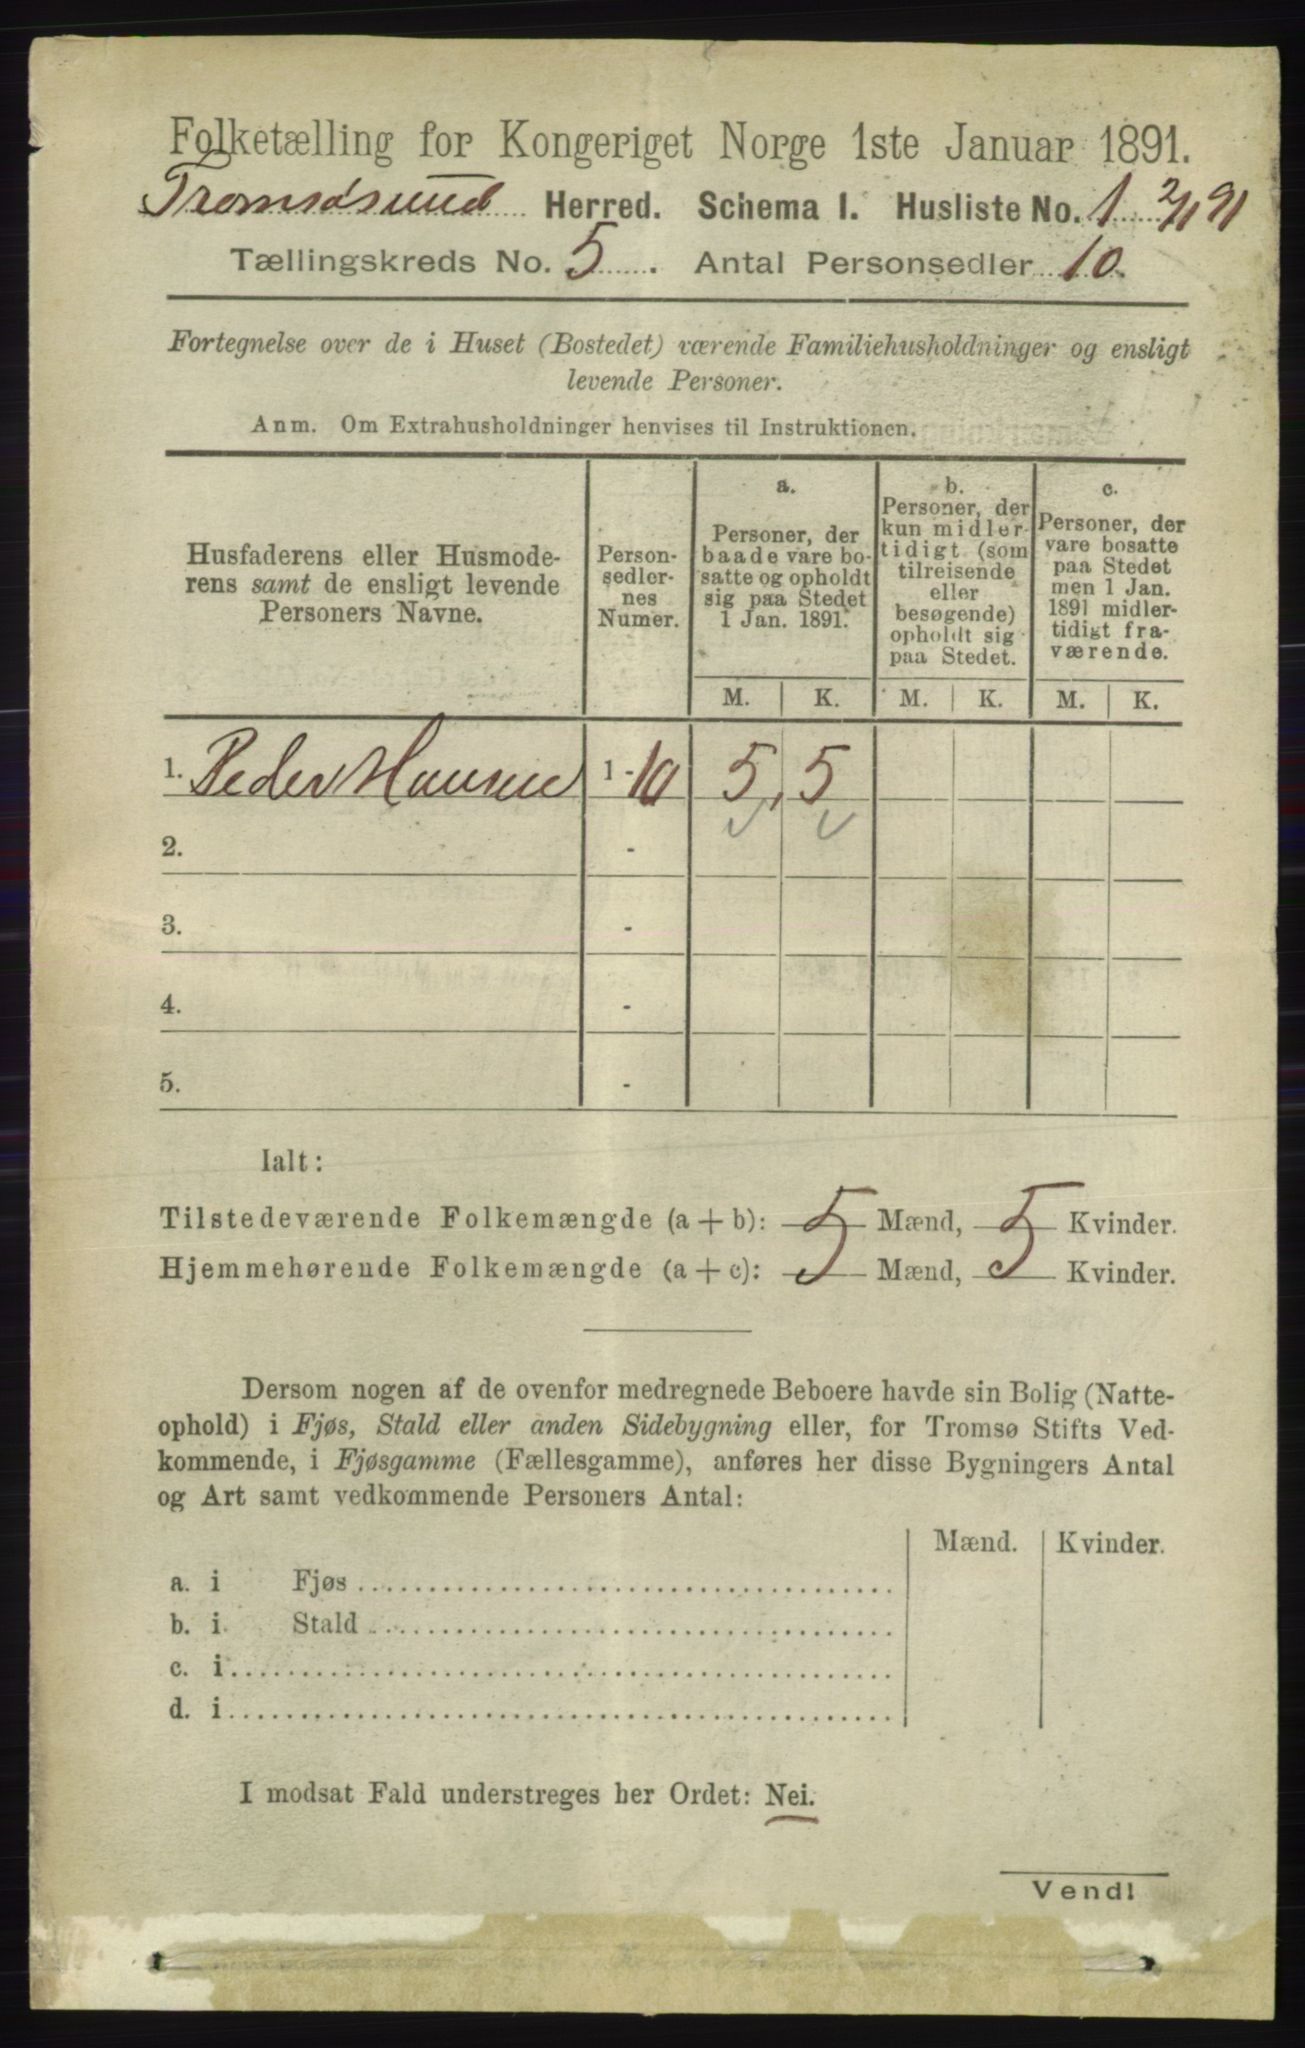 Folketælling for Kongeriget Norge 1ste Januar 1891.
Tromsøsund Herred. Schema I. Husliste No. 1 2/1 91
Tællingskreds No. 5. Antal Personsedler 10.
Fortegnelse over de i Huset (Bostedet) værende Familiehusholdninger og ensligt
levende Personer.
Anm. Om Extrahusholdninger henvises til Instruktionen.
Husfaderens eller Husmode-
rens samt de ensligt levende
Personers Navne.
Person-
sedler-
nes
Numer.
a.
Personer, der
baade vare bo-
satte og opholdt
sig paa Stedet
1 Jan. 1891.
b.
Personer, der
kun midler-
tidigt (som
tilreisende
eller
besøgende)
opholdt sig
paa Stedet.
c.
Personer, der
vare bosatte
paa Stedet
men 1 Jan.
1891 midler-
tidigt fra-
værende.
M. K. M. K. M. K.
1. Peder Hansen 1 - 10 5 5
2. -
3. -
4. -
5. -
Ialt:
Tilstedeværende Folkemængde (a + b): 5 Mænd, 5 Kvinder.
Hjemmehørende Folkemængde (a + c): 5 Mænd, 5 Kvinder.
Dersom nogen af de ovenfor medregnede Beboere havde sin Bolig (Natte-
ophold) i Fjøs, Stald eller anden Sidebygning eller, for Tromsø Stifts Ved-
kommende, i Fjøsgamme (Fællesgamme), anføres her disse Bygningers Antal
og Art samt vedkommende Personers Antal:
Mænd. Kvinder.
a. i Fjøs
b. i Stald
c. i
d. i
I modsat Fald understreges her Ordet: Nei.
Vend!